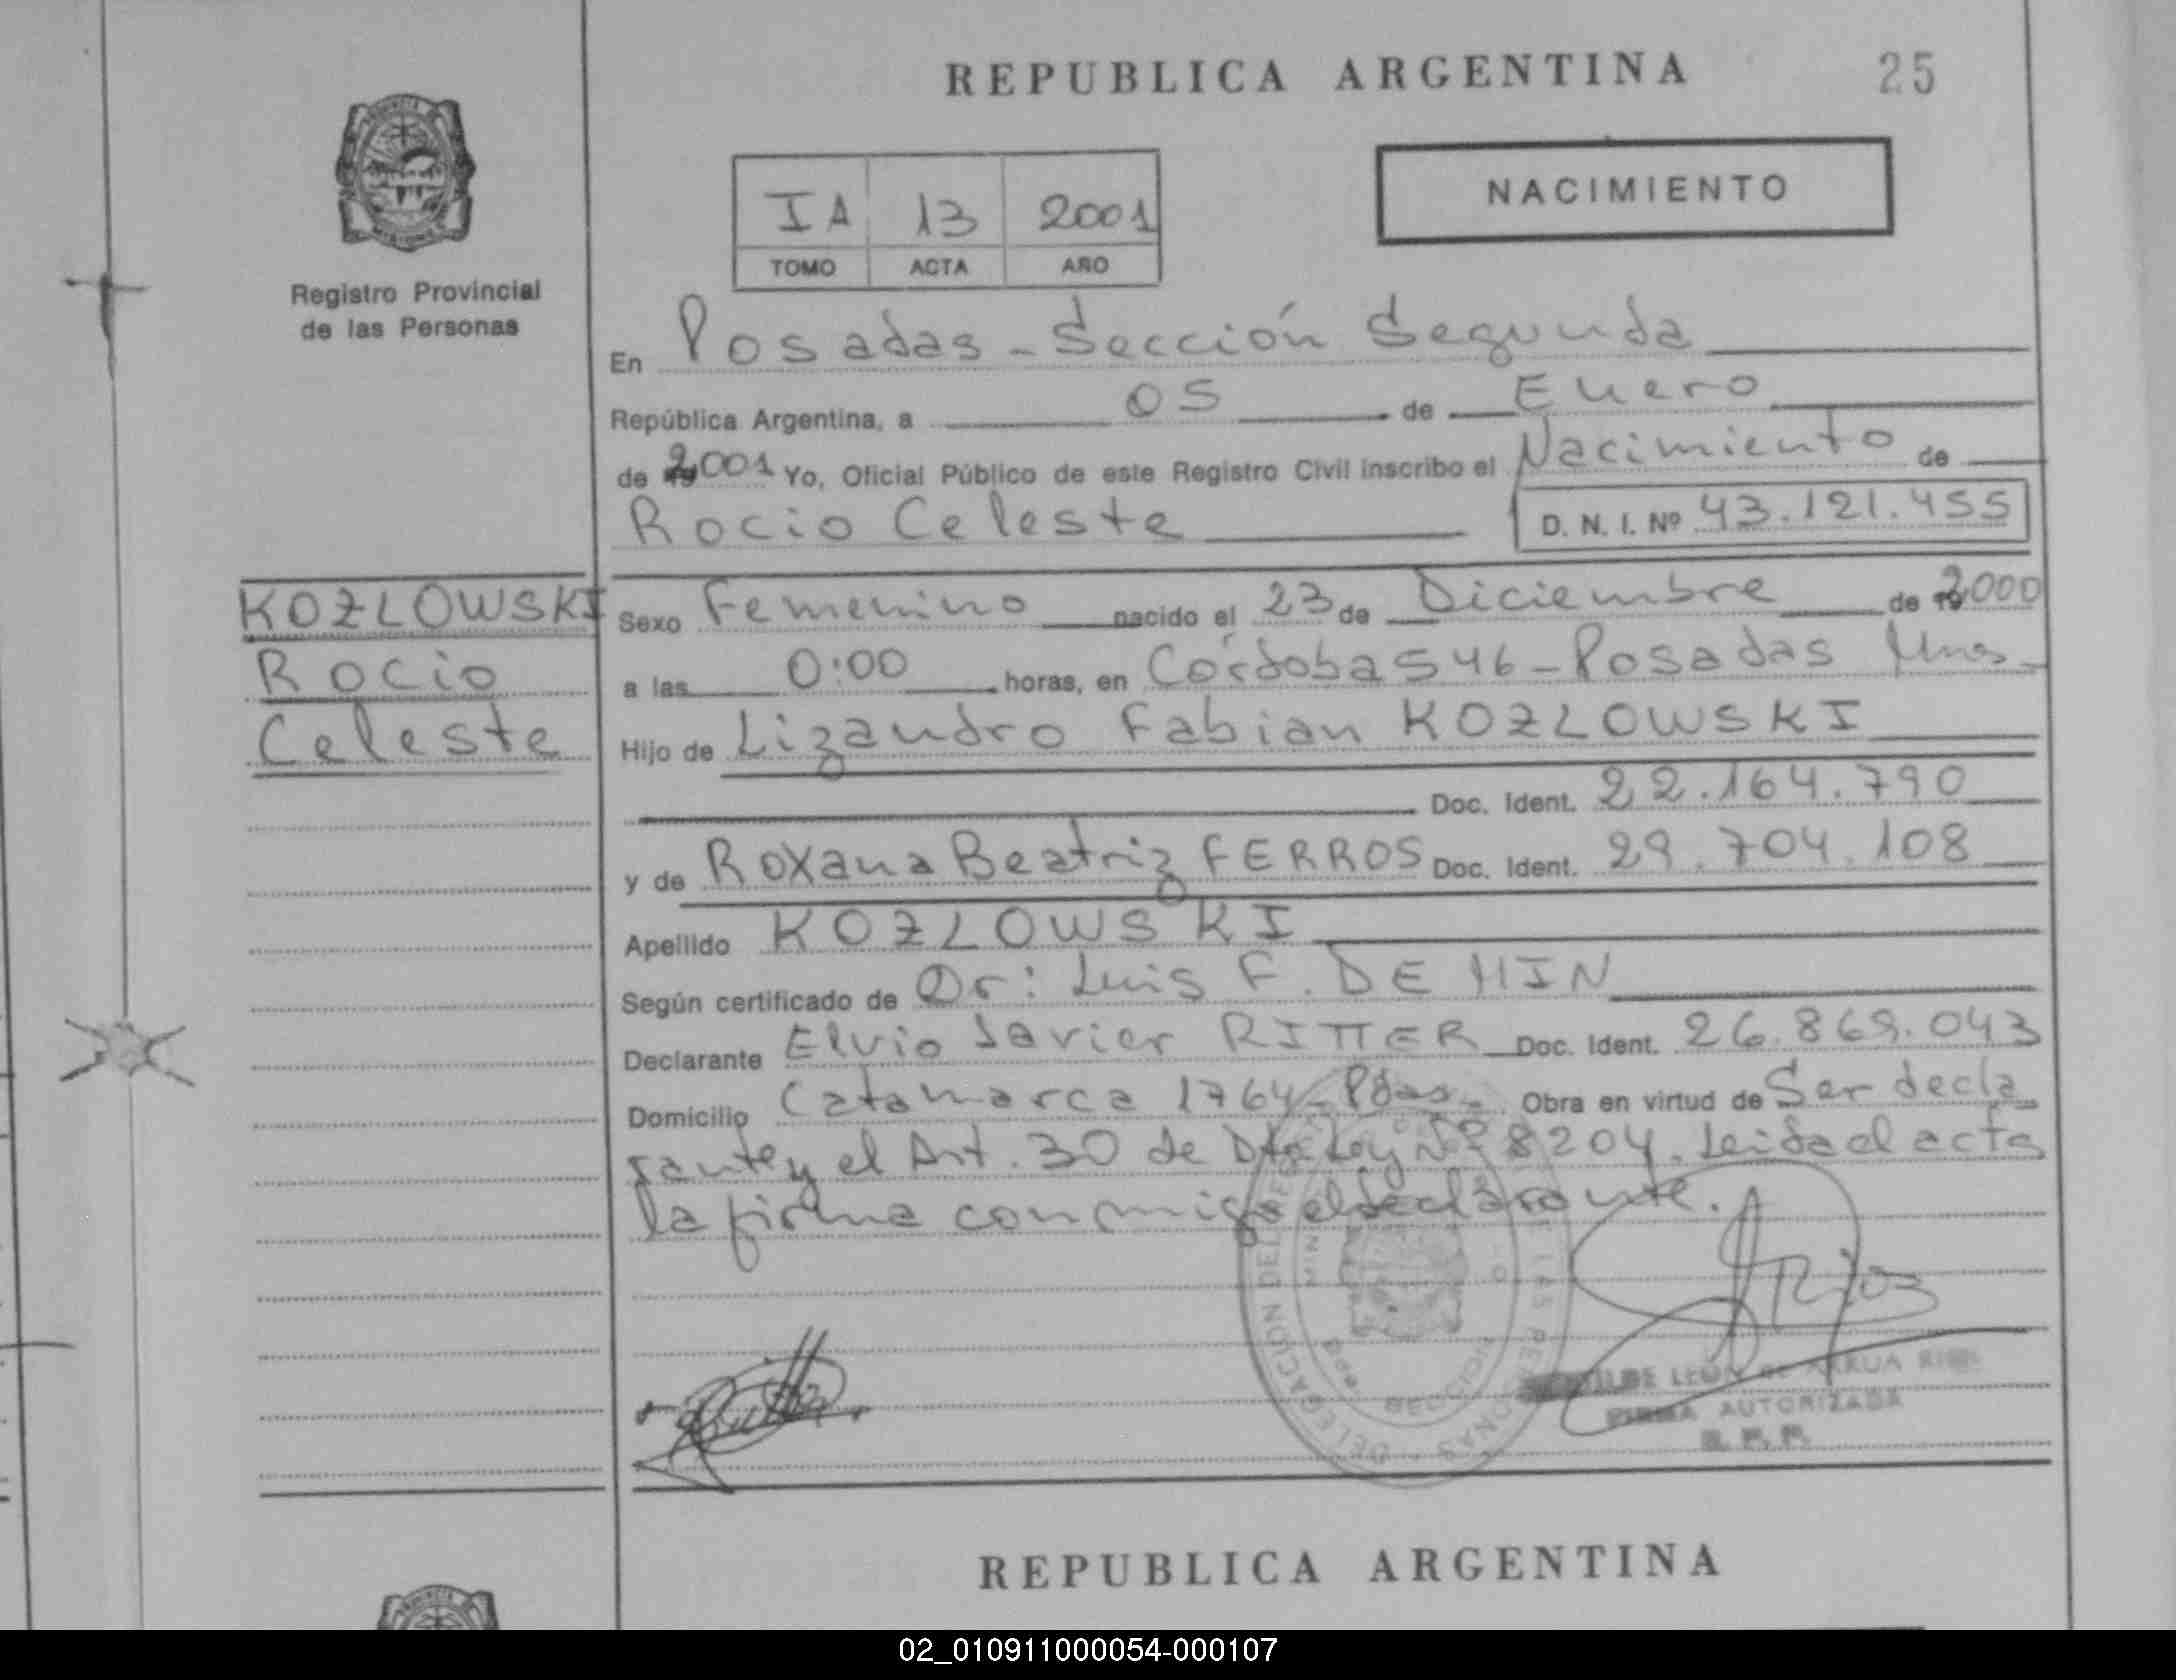 REPUBLICA ARGENTINA 25
NACIMIENTO
IA 13 2001
TOMO ACTA AÑO
Registro Provincial
de las Personas
En Posadas - Sección Segunda
República Argentina, a 05 de Enero
de 2001 Yo, Oficial Público de este Registro Civil inscribo el Nacimiento de
Rocio Celeste D. N. I. Nº 43.121.455
KOZLOWSKI
Rocio
Celeste
Sexo Femenino nacido el 23 de Diciembre de 2000
a las 0:00 horas, en Córdoba 546 - Posadas Mnes-
Hijo de Lizandro Fabian KOZLOWSKI
Doc. Ident. 22.164.790
y de Roxana Beatriz FERROS Doc. Ident. 29.704.108
Apellido KOZLOWSKI
Según certificado de Dr: Luis F. DE MIN
Declarante Elvio Javier RITTER Doc. Ident. 26.869.043
Domicilio Catamarca 1764 - Pdas- Obra en virtud de Ser decla
rante y el Art. 30 de Dto Ley Nº 8204. Leida el acta
la firma conmigo el declarante.
DELEGACION DEL LAS PERSONAS
SECCION
LEON DE ARRUA
FIRMA AUTORIZADA
R. P. P.
REPUBLICA ARGENTINA
02_010911000054-000107